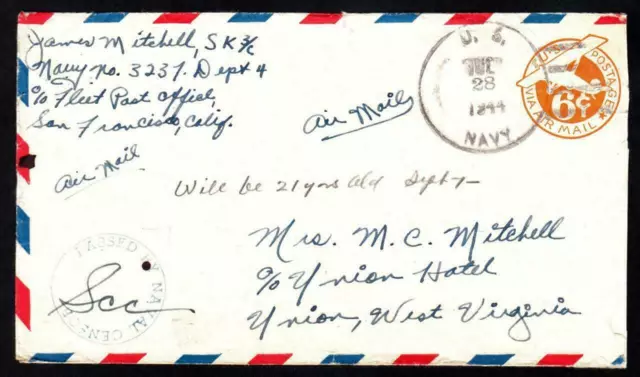 James Mitchell, SK 3/c
Navy no. 3237. Dept 4
c/o Fleet Post Office,
San Francisco, Calif.
Air Mail
Air Mail
U. S.
28
1944
NAVY
U.S. POSTAGE
6¢
VIA AIR MAIL
Will be 21 yrs old Sept 7—
Mrs. M. C. Mitchell
c/o Union Hotel
Union, West Virginia
PASSED BY NAVAL CENSOR
Scc